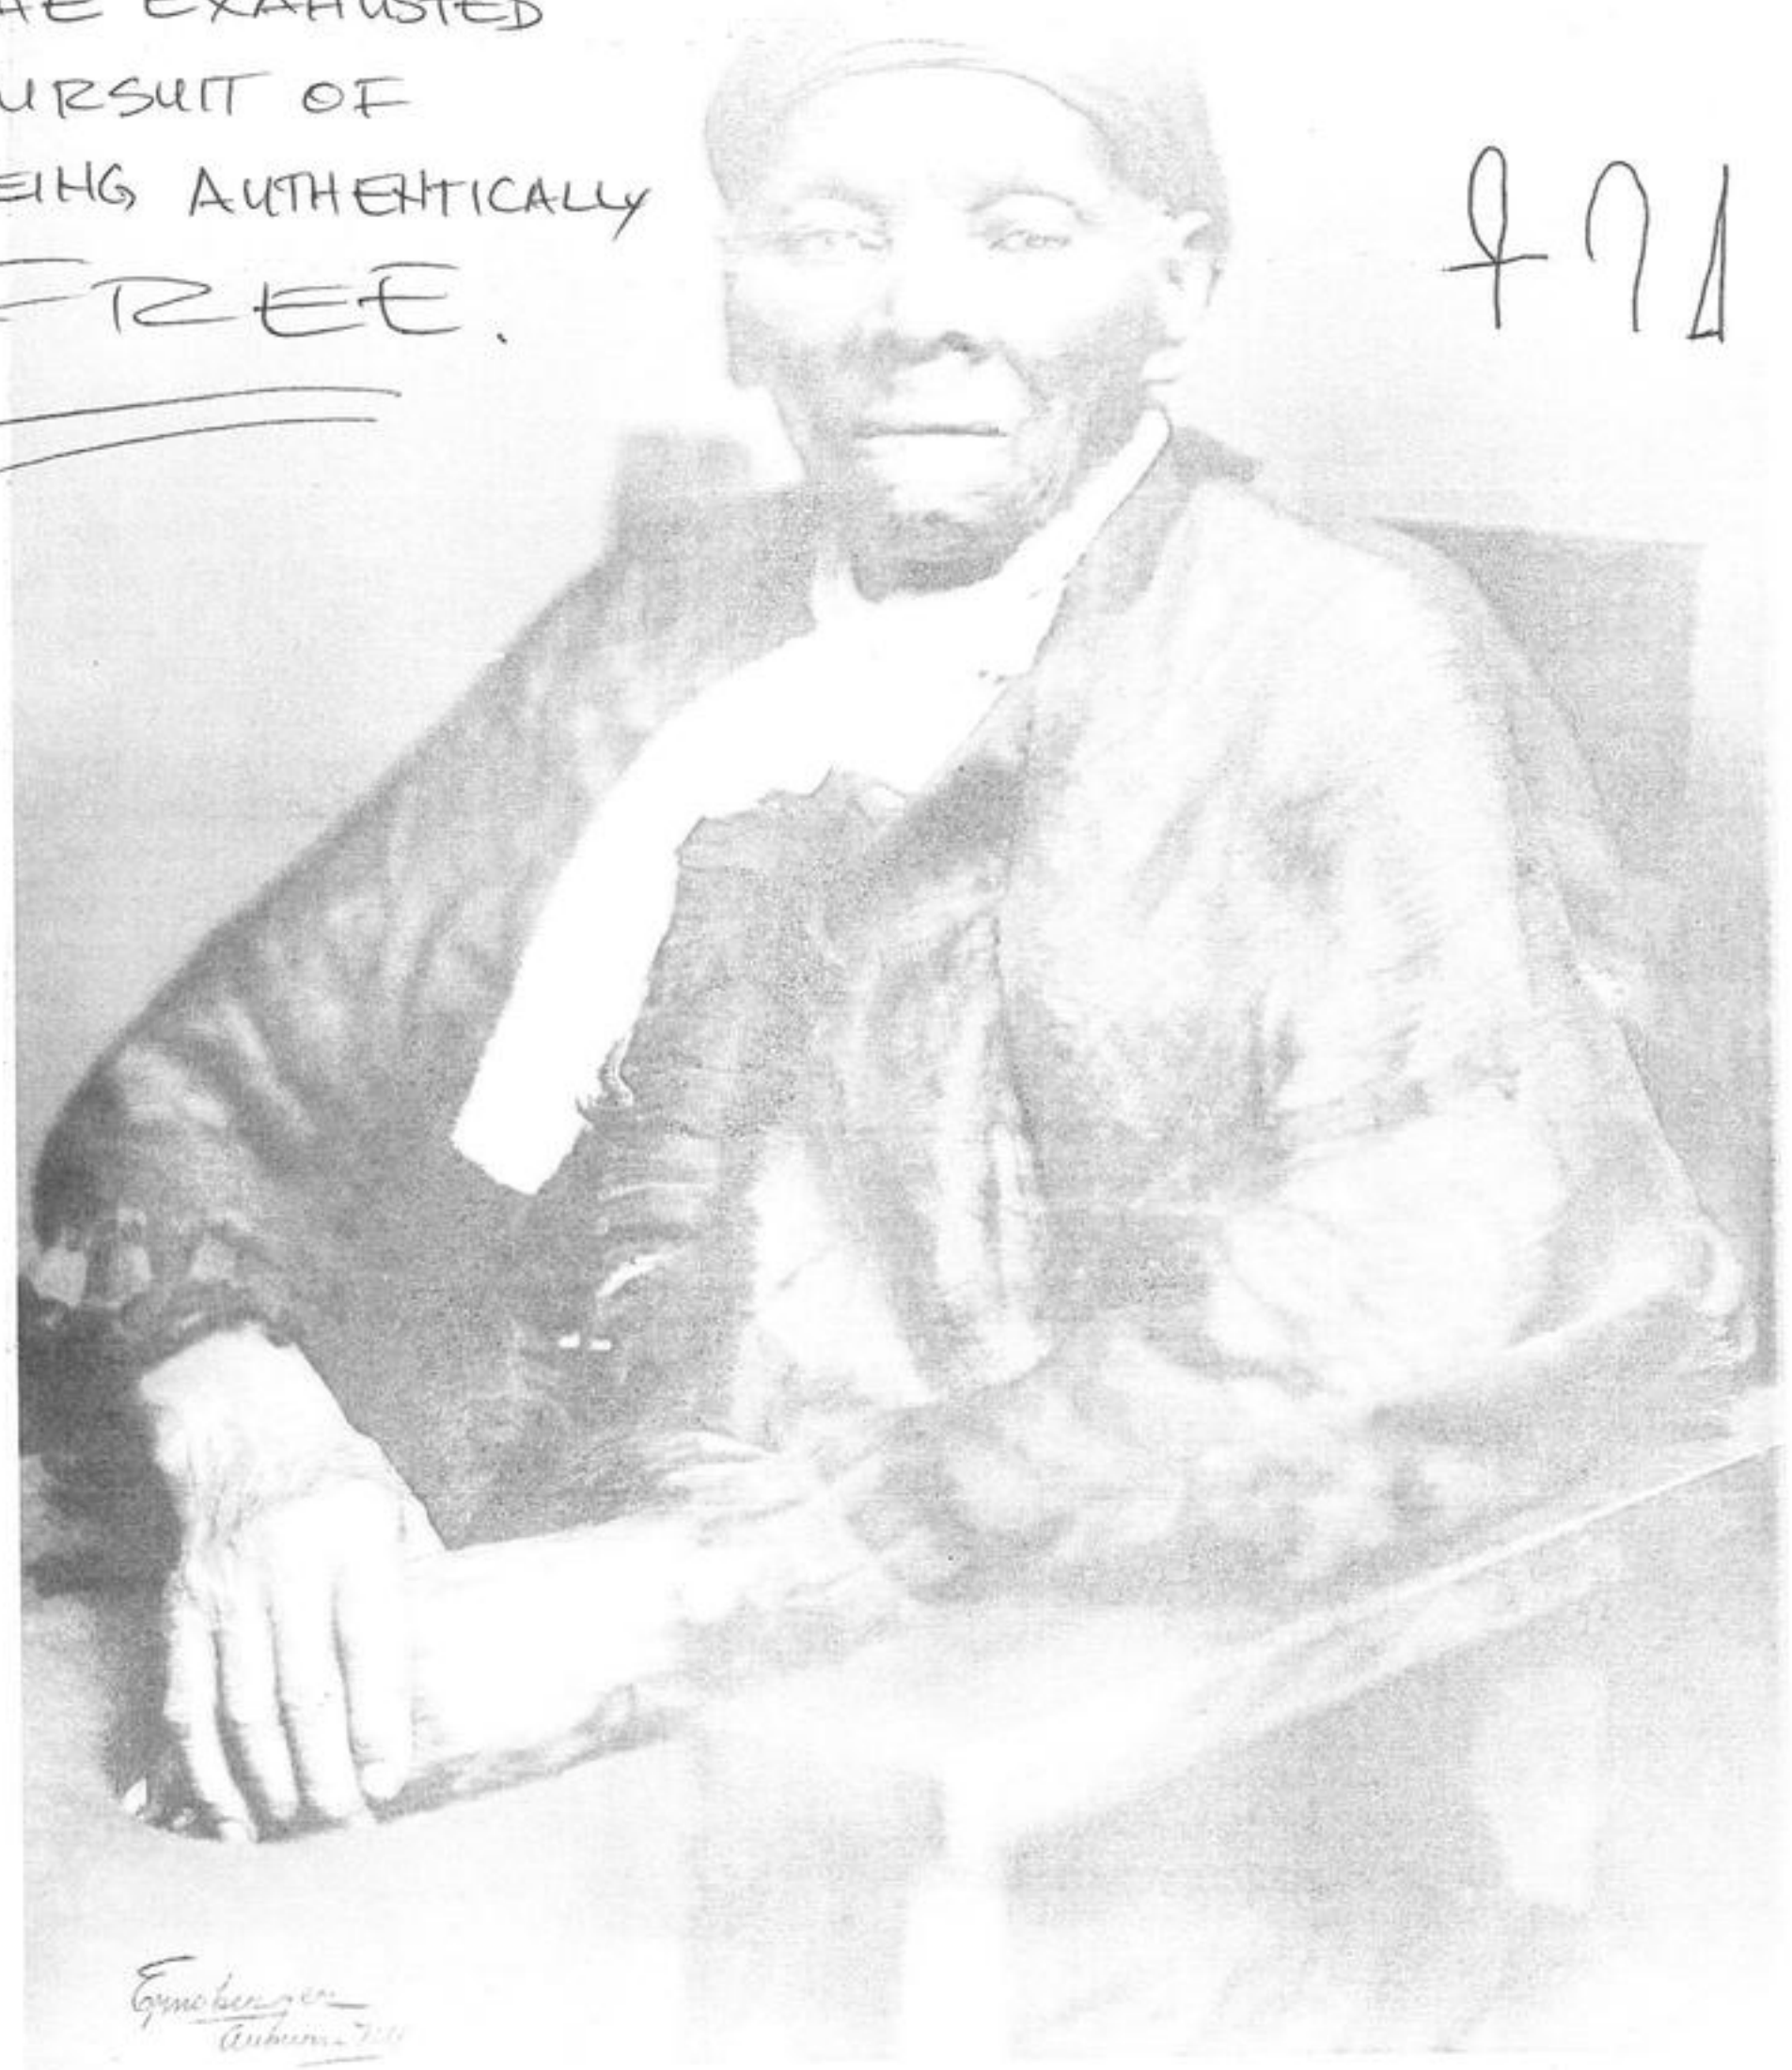 HE EXAHUSTED
URSUIT OF
EING AUTHENTICALLY
FREE.
Auburn